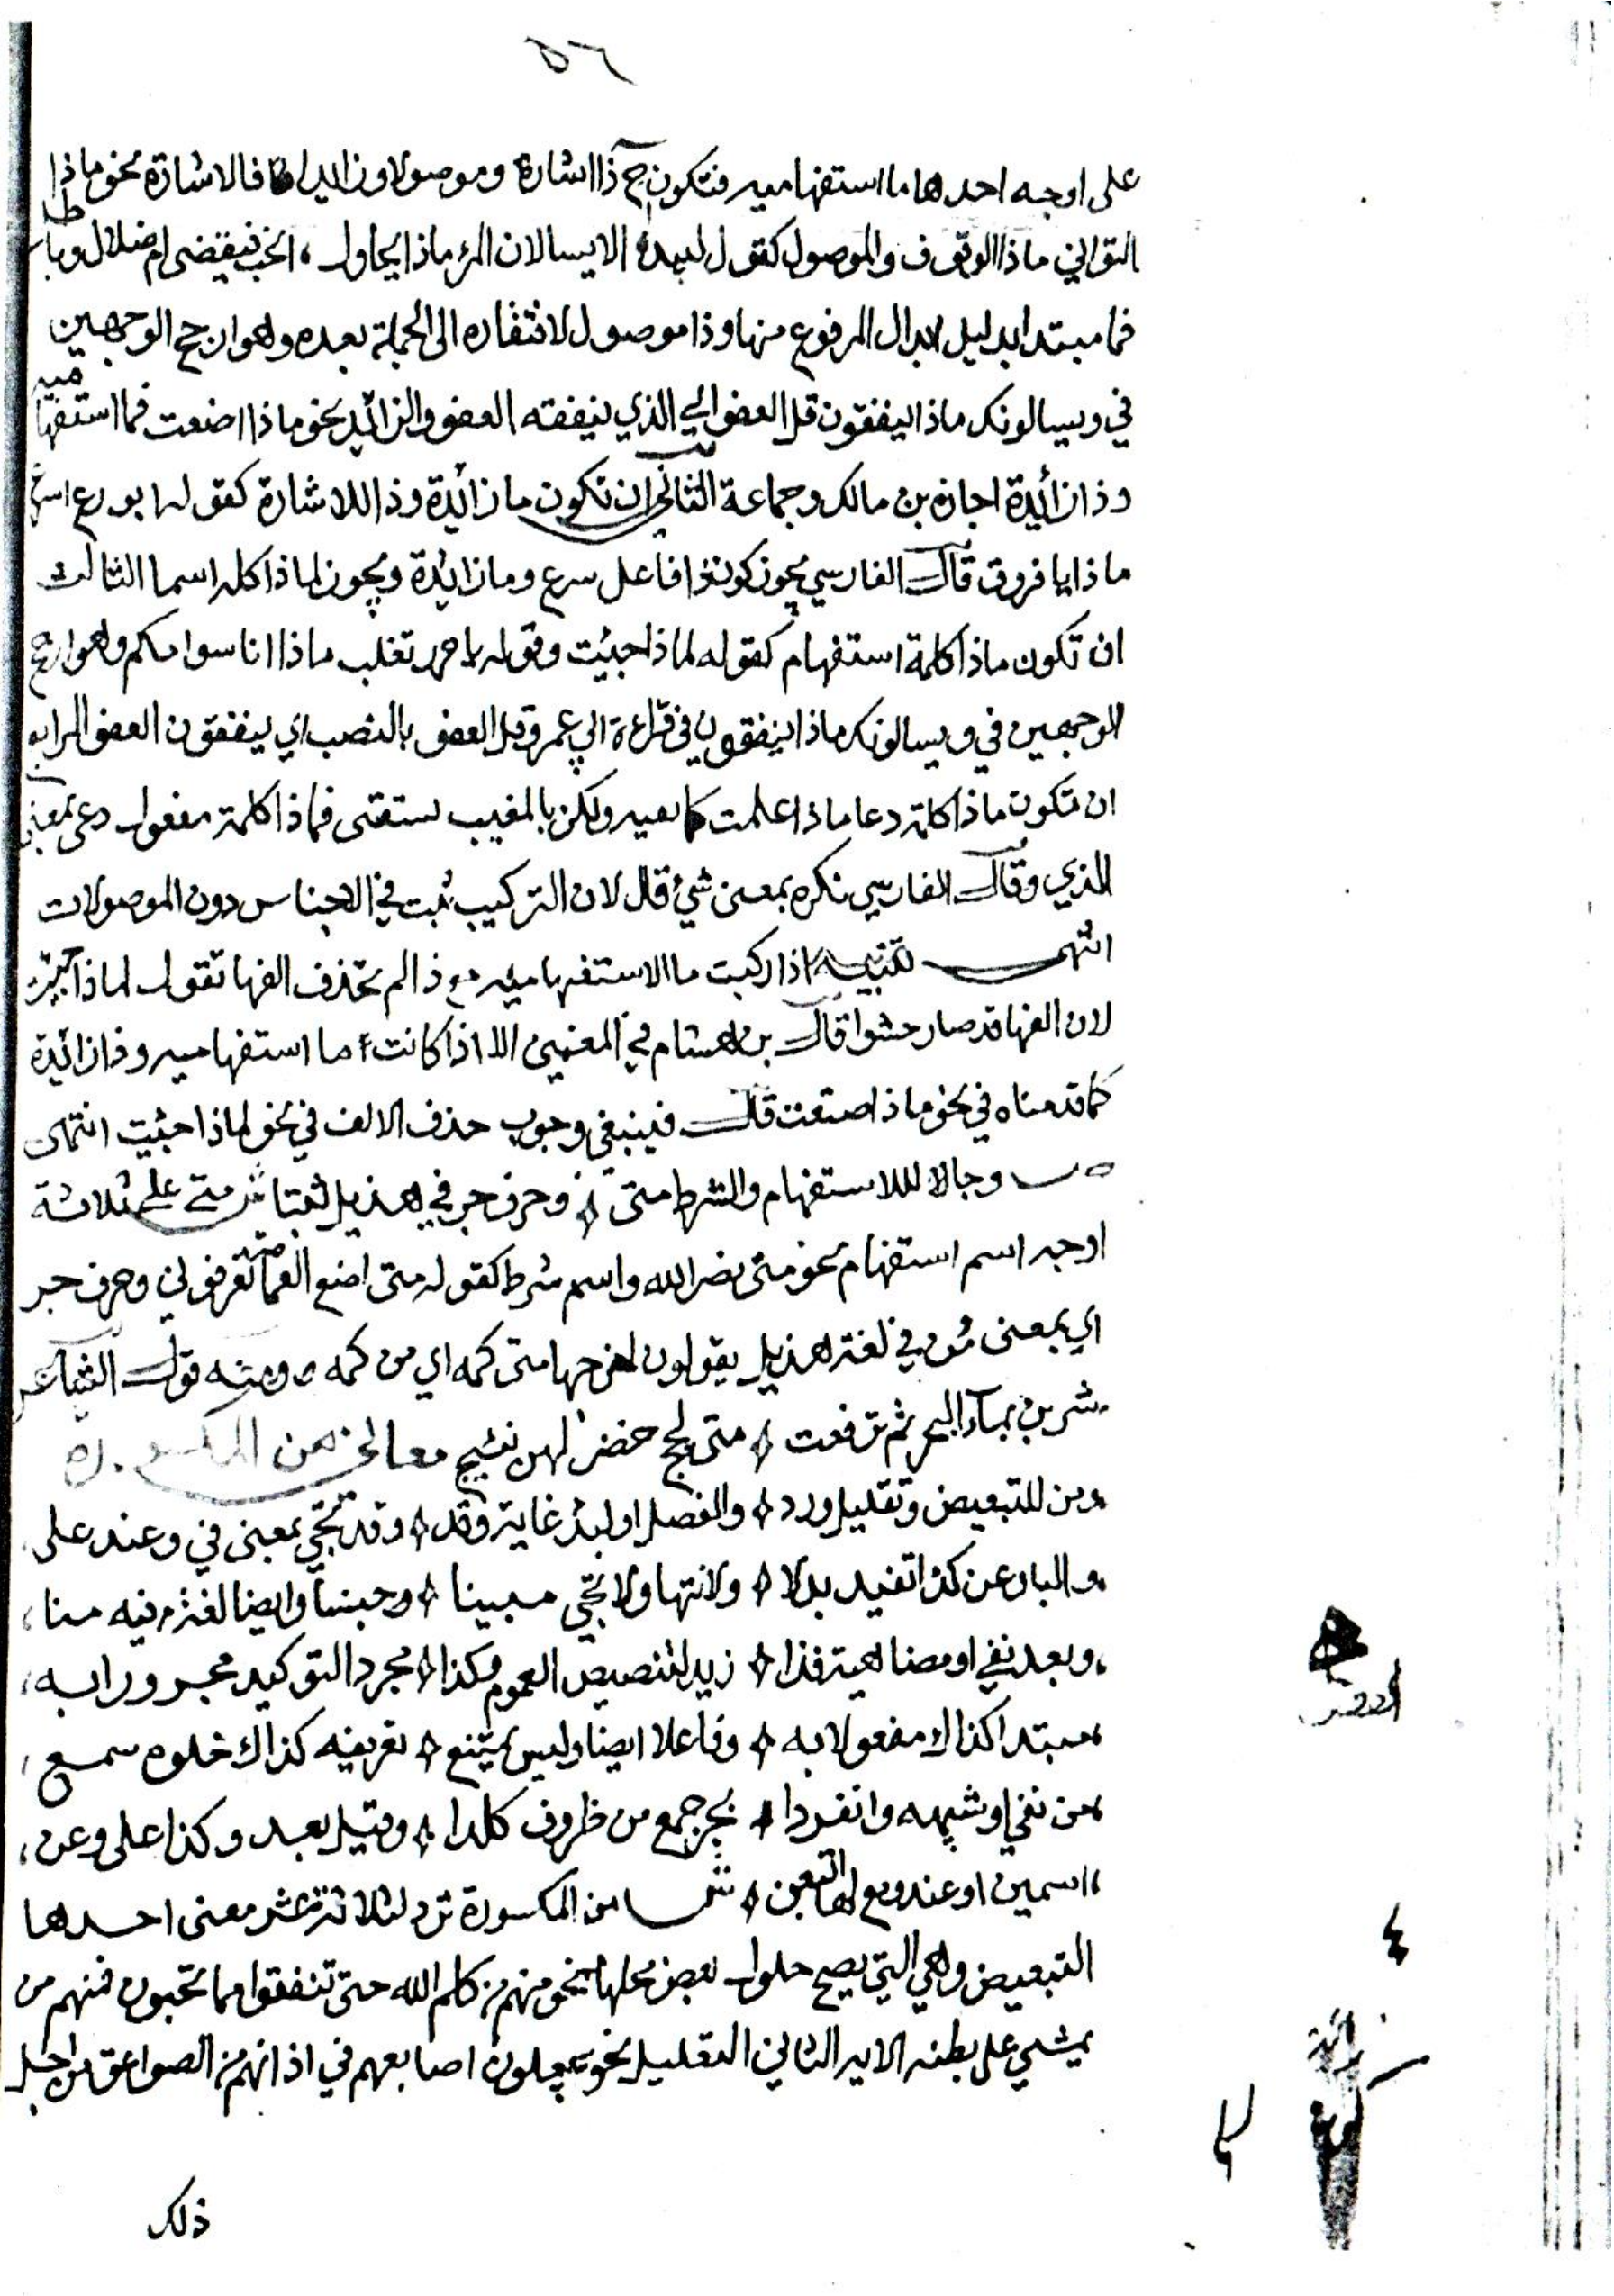 ٥٦
على اوجه احدها ما استفهاميه فتكون ح ذا اشارة وموصولا وزايدا فالاشارة نحو ماذا
التواني ماذا الوقوف والموصول كقول لبيد الا يسالان المرء ماذا يحاول ، انحب فيقضى ام ضلال وباطل
فما مبتدا بدليل ابدال المرفوع منها وذا موصول لافتقاره الى الجملة بعده وهو ارجح الوجهين
في ويسالونك ماذا ينفقون قل العفو اي الذي ينفقته العفو والزائد نحو ماذا اصنعت فما استفهاميه
وذا زائدة اجازه بن مالك وجماعة الثاني ان تكون ما زائدة وذا للاشارة كقوله ابورع اسرع
ماذا يا فروق قال الفارسي يجوز كون ذا فاعل سرع وما زائدة ويجوز لماذا كله اسما الثالث
ان تكون ماذا كلمة استفهام كقوله لماذا جيئت وقوله تغلب ماذا وهو ارجح
الوجهين في ويسالونك ماذا ينفقون في قراءة ابي عمرو قل العفو بالنصب اي ينفقون العفو الرابع
ان تكون ماذا كلمة دعا ماذا علمت ولكن بالمغيب فماذا كلمة مفعول دعى بمعنى
الذي وقال الفارسي نكره بمعنى شيء قال لان التركيب ثبت في الاجناس دون الموصولات
انتهى تنبيه اذا ركبت ما الاستفهاميه مع ذا لم تحذف الفها تقول لماذا جيئت
لان الفها قد صار حشوا قال بن هشام في المغني الا اذا كانت ما استفهاميه وذا زائدة
كما قدمناه في نحو ماذا صنعت قال فينبغي وجوب حذف الالف في نحو لماذا جئيت انتهى
ص وجا للاستفهام والشرط متى وحرف جر في هذيل ثبتا ش متى على ثلاثة
اوجه اسم استفهام نحو متى نصر الله واسم شرط كقوله متى اضع العمامة تعرفوني وحرف جر
اي بمعنى من في لغة هذيل يقولون اخرجها متى كمه اي من كمه ومنه قول الشاعر
شربن بماء البحر ثم ترفعت متى لجج خضر لهن نئيج معاني من المكسورة
ومن للتبعيض وتعليل ورد والفصل او لبدء غاية وقد وقد تجي بمعنى في وعند على
والبا وعن كذا تفيد بدلا ولانتها ولا تجي مبينا وجنسا وايضا
وبعد نفي او مضاهيه فذا زيد لتنصيص العموم وكذا مجرد التوكيد مجرورا به
مبتدا كذاك مفعولا به وفاعلا ايضا وليس يمتنع تعريفه كذاك خلوه سمع
من نفي او شبهه وانفردا بجر جمع من ظروف كلدا وقيل بعد وكذا على وعن
اسمين او عند ومع ش من المكسورة ترد لثلاثة عشر معنى احدها
التبعيض وهي التي يصح حلول بعض محلها نحو منهم من كلم الله حتى تنفقوا مما تحبون فمنهم من
يمشي على بطنه الايه الثاني التعليل نحو يجعلون اصابعهم في اذانهم من الصواعق من اجل
ذلك